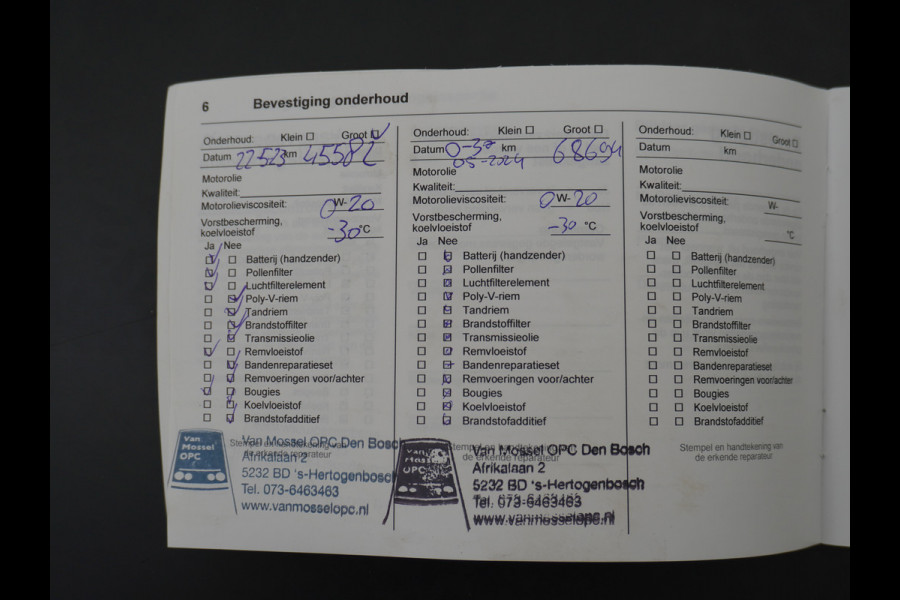 6 Bevestiging onderhoud
Onderhoud: Klein Groot
Datum 22523 km 45582
Motorolie
Kwaliteit:
Motorolieviscositeit: 0W-20
Vorstbescherming,
koelvloeistof -30 °C
Ja Nee
Batterij (handzender)
Pollenfilter
Luchtfilterelement
Poly-V-riem
Tandriem
Brandstoffilter
Transmissieolie
Remvloeistof
Bandenreparatieset
Remvoeringen voor/achter
Bougies
Koelvloeistof
Brandstofadditief
Stempel en handtekening van
de erkende reparateur
Van Mossel OPC
Van Mossel OPC Den Bosch
Afrikalaan 2
5232 BD 's-Hertogenbosch
Tel. 073-6463463
www.vanmosselopc.nl
Onderhoud: Klein Groot
Datum km 68694
05-2024
Motorolie
Kwaliteit:
Motorolieviscositeit: 0W-20
Vorstbescherming,
koelvloeistof -30 °C
Ja Nee
Batterij (handzender)
Pollenfilter
Luchtfilterelement
Poly-V-riem
Tandriem
Brandstoffilter
Transmissieolie
Remvloeistof
Bandenreparatieset
Remvoeringen voor/achter
Bougies
Koelvloeistof
Brandstofadditief
Stempel en handtekening van
de erkende reparateur
Van Mossel OPC
Van Mossel OPC Den Bosch
Afrikalaan 2
5232 BD 's-Hertogenbosch
Tel. 073-6463463
www.vanmosselopc.nl
Onderhoud: Klein Groot
Datum km
Motorolie
Kwaliteit:
Motorolieviscositeit: W-
Vorstbescherming,
koelvloeistof °C
Ja Nee
Batterij (handzender)
Pollenfilter
Luchtfilterelement
Poly-V-riem
Tandriem
Brandstoffilter
Transmissieolie
Remvloeistof
Bandenreparatieset
Remvoeringen voor/achter
Bougies
Koelvloeistof
Brandstofadditief
Stempel en handtekening van
de erkende reparateur